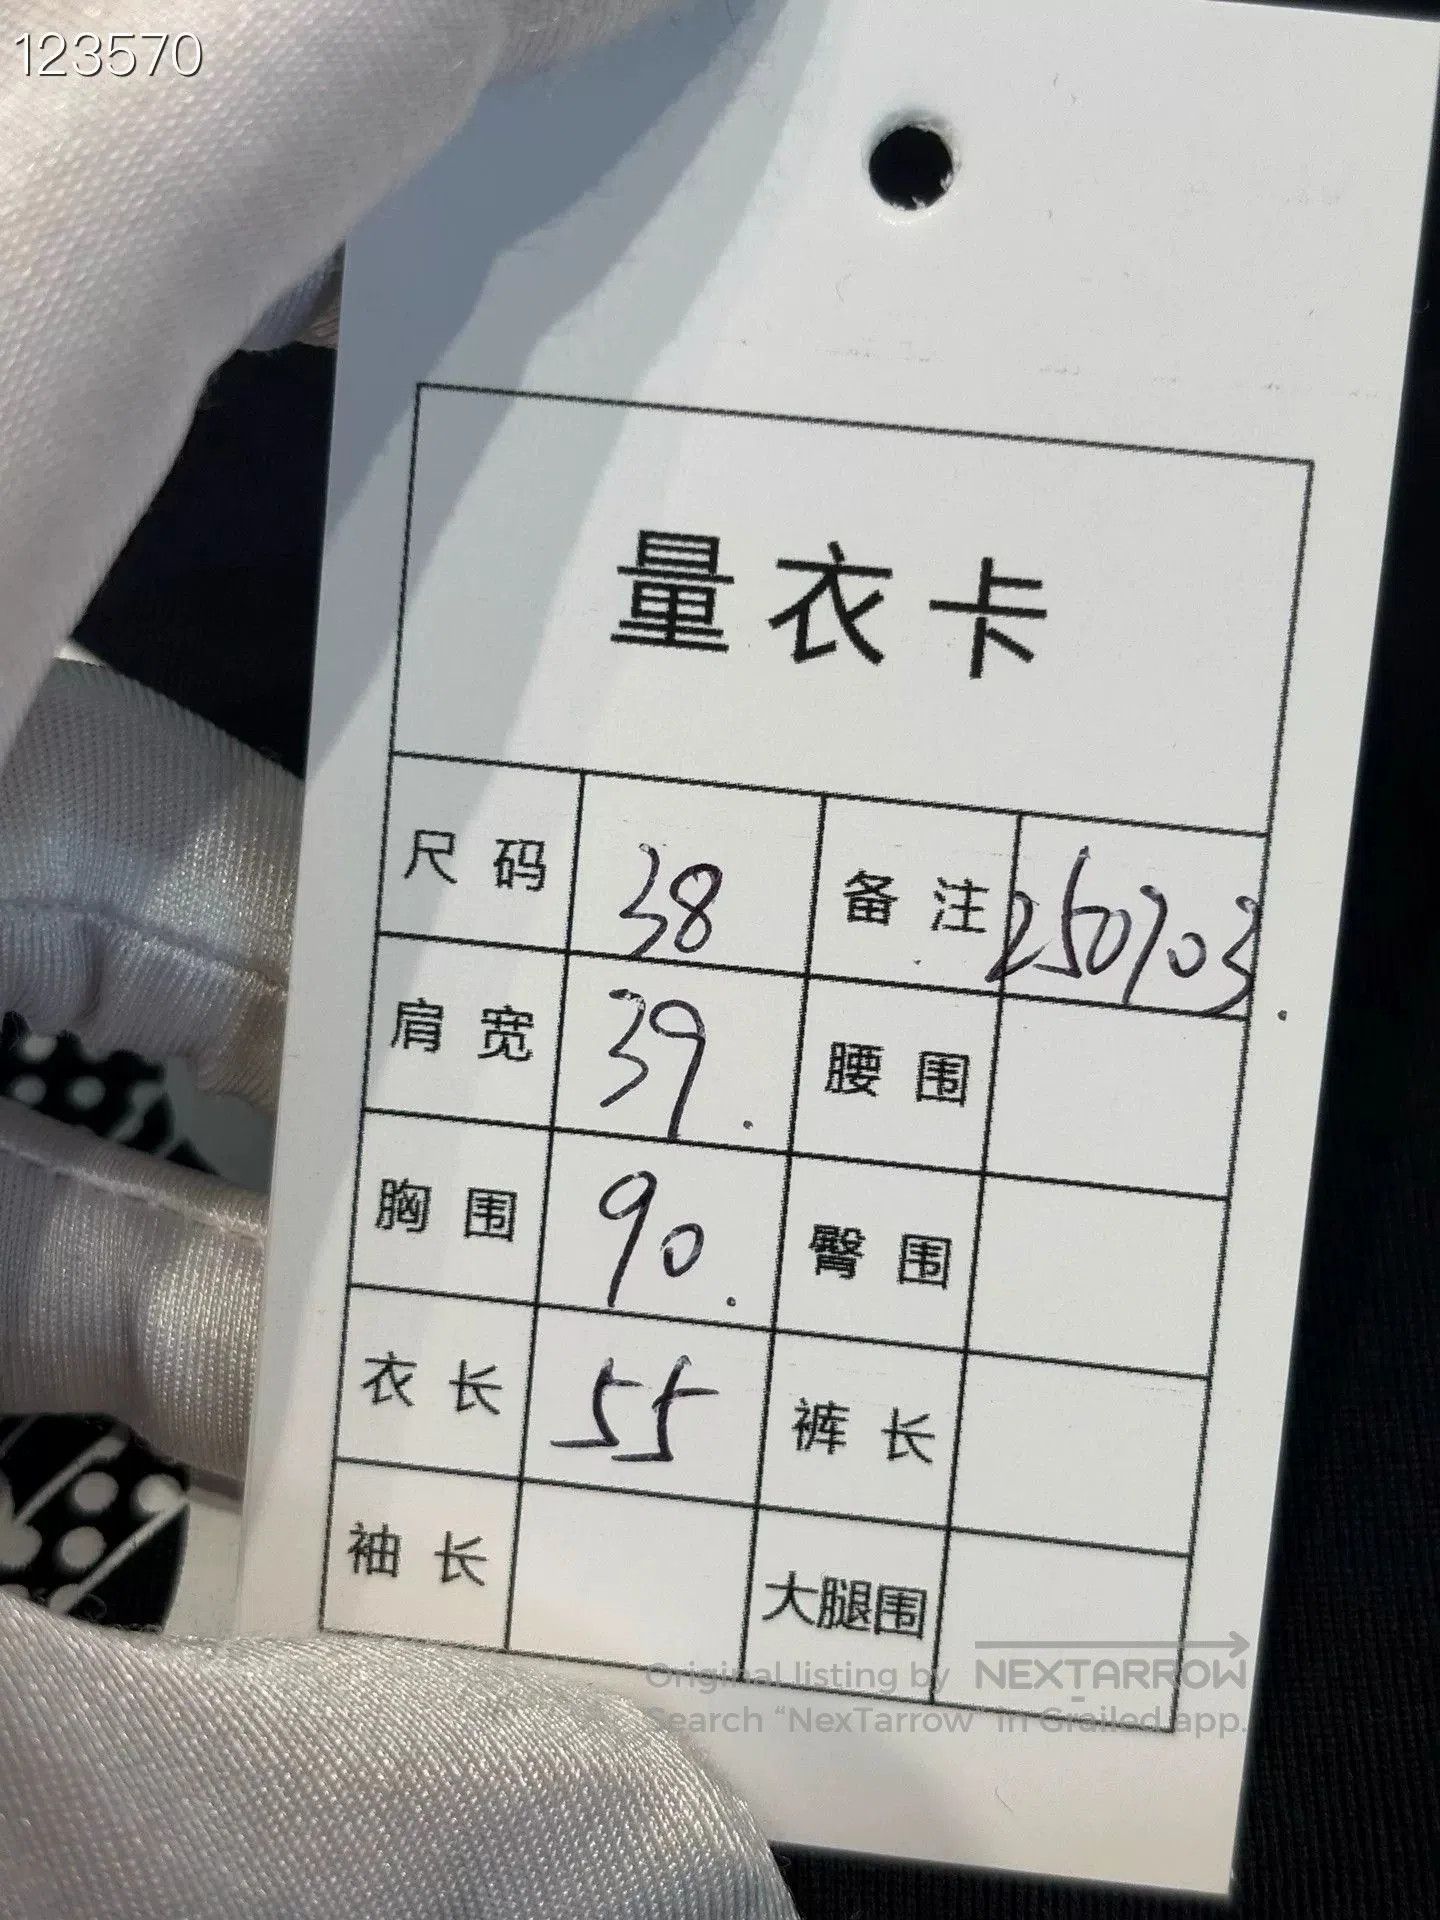 123570
量衣卡
尺码 38 备注 250703
肩宽 39. 腰围
胸围 90. 臀围
衣长 55 裤长
袖长 大腿围
Original listing by NEXTARROW
Search “NexTarrow” in Grailed app.